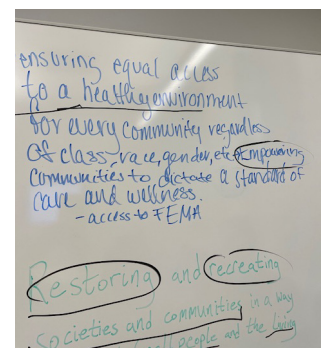 ensuring equal access
to a healthy environment
for every community regardless
of class, race, gender, etc. empowering
communities to dictate a standard of
care and wellness.
- access to FEMA
Restoring and recreating
societies and communities in a way
people and the living